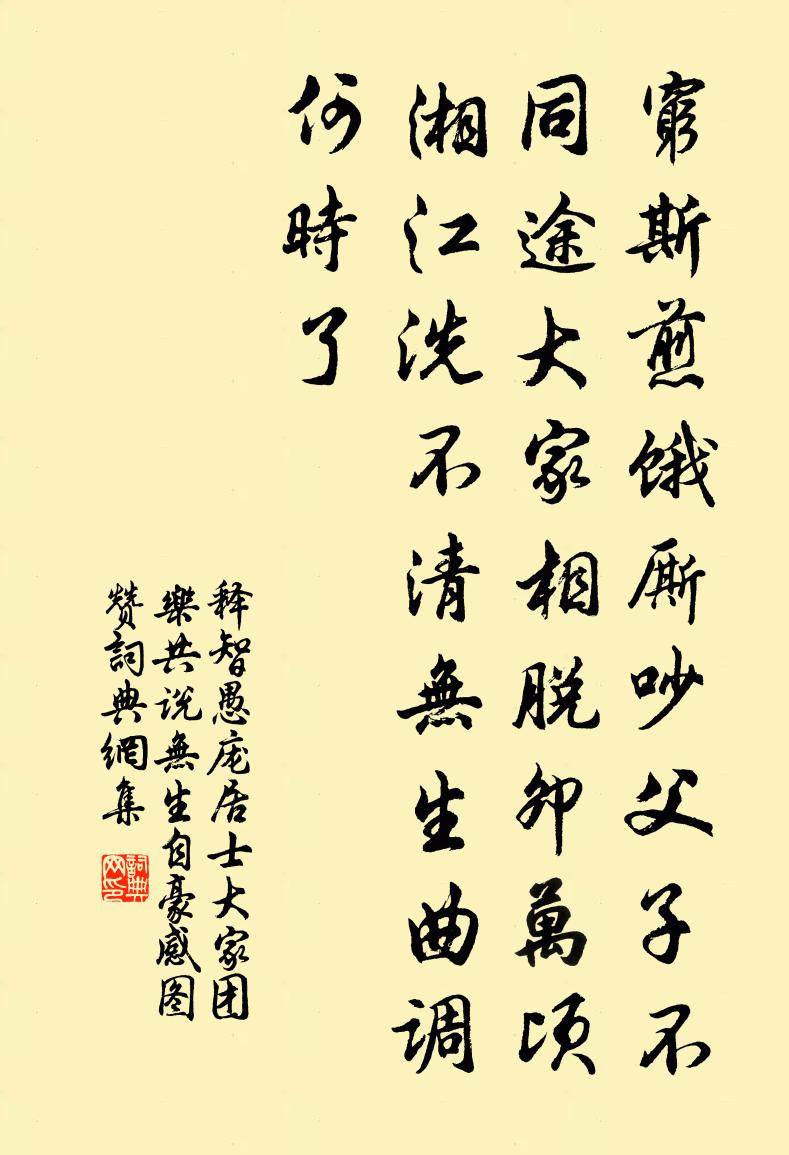 窮斯煎餓厮吵父子不
同途大家相脱卵萬頃
湘江洗不清無生曲调
何時了
释智愚庞居士大家团
樂共说無生自豪感图
赞詞典網集
詞典
网印